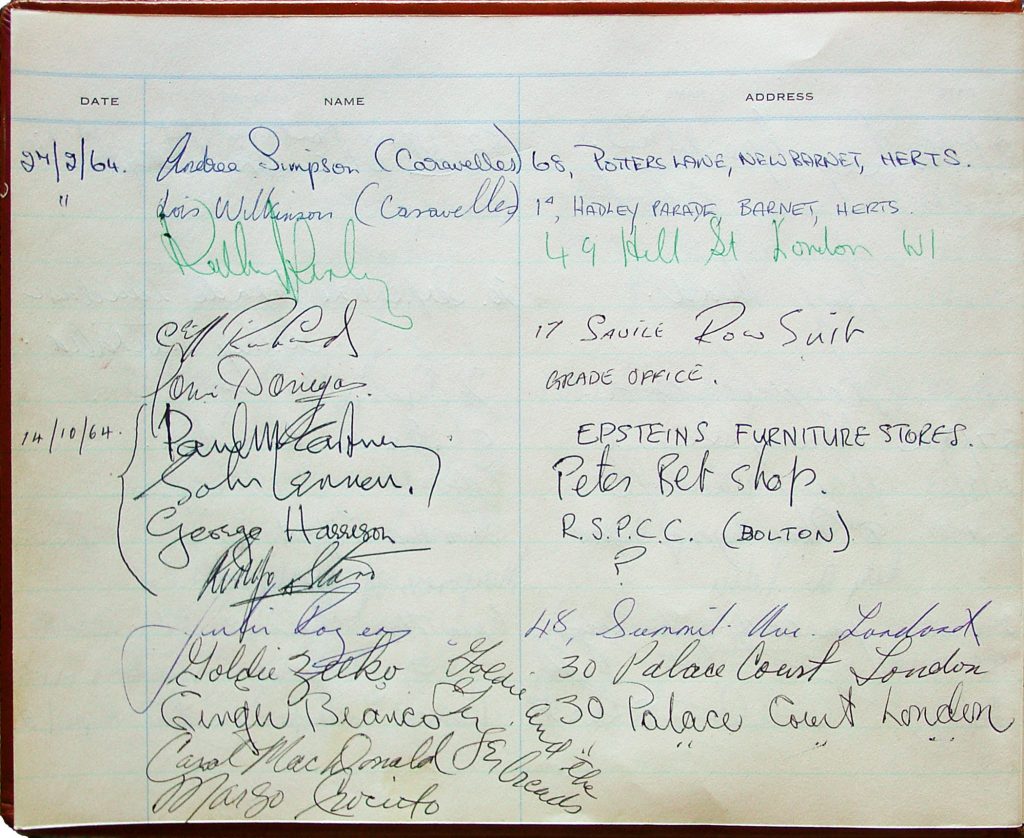 DATE NAME ADDRESS
24/2/64. Andrea Simpson (Caravelles) 68, POTTERS LANE, NEW BARNET, HERTS.
" Lois Wilkinson (Caravelles) 1a, HADLEY PARADE, BARNET, HERTS.
Kathy Kirby 49 Hill St London W1
Cliff Richard 17 SAVILE Row Suit
Donegan GRADE OFFICE.
14/10/64. Paul McCartney EPSTEINS FURNITURE STORES.
John Lennon. Petes Bet shop.
George Harrison R.S.P.C.C. (BOLTON)
Ringo Starr ?
48, Summit Ave. London
Goldie Zelko 30 Palace Court London
Ginger Bianco 30 Palace Court London
Carol MacDonald " " "
Margo Crocitto
"Goldie and the Gingerbreads